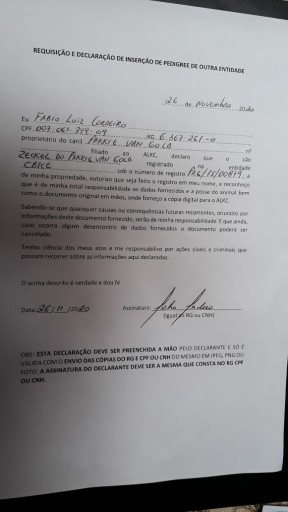 REQUISIÇÃO E DECLARAÇÃO DE INSERÇÃO DE PEDIGREE DE OUTRA ENTIDADE
26 de Novembro 2020
Eu FABIO LUIZ CORDEIRO
CPF 007.061.379-09 RG 6.367.261-0 nº
proprietário do canil PARRIE VAN GOLD
filiado ao ALKC, declaro que o cão
ZECKEL DO PARRIE VAN GOLD registrado na entidade
CBKC sob o número de registro e
de minha propriedade, autorizo que seja feito o registro em meu nome, e reconheço
que é de minha total responsabilidade os dados fornecidos e a posse do animal bem
como o documento original em mãos, onde forneço a cópia digital para o ALKC.
Sabendo-se que quaisquer causas ou consequências futuras recorrentes, oriundos por
informações deste documento fornecido, serão de minha responsabilidade. E que ainda,
caso ocorra algum desencontro de dados fornecidos o documento poderá ser
cancelado.
Tenho ciência dos meus atos e me responsabilizo por ações civeis e criminais que
possam recorrer sobre as informações aqui declaradas.
O acima descrito é verdade e dou fé
Data: 26/11/2020 Assinatura:
(Igual ao RG ou CNH)
OBS: ESTA DECLARAÇÃO DEVE SER PREENCHIDA A MÃO PELO DECLARANTE E SÓ É
VÁLIDA COM O ENVIO DAS CÓPIAS DO RG E CPF OU CNH DO MESMO EM JPEG, PNG OU
FOTO. A ASSINATURA DO DECLARANTE DEVE SER A MESMA QUE CONSTA NO RG CPF
OU CNH.